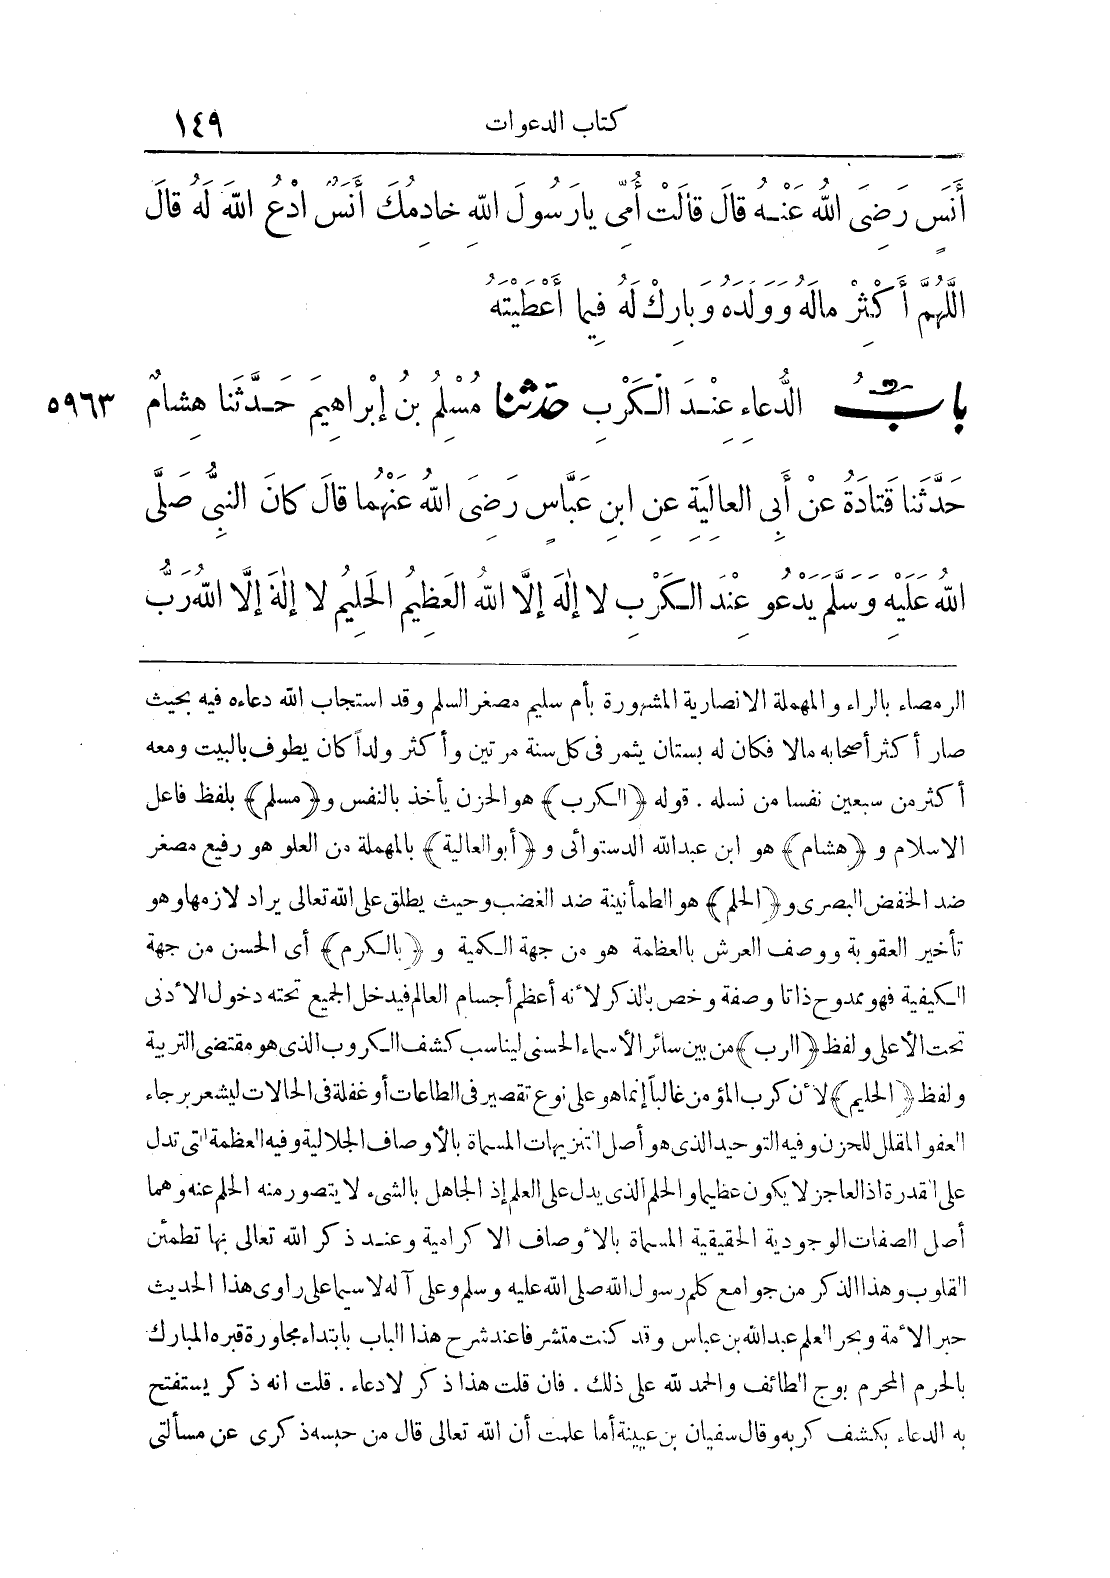 كتاب الدعوات
١٤٩
أَنَسٍ رَضِىَ اللهُ عَنْـهُ قالَ قالَتْ أُمِّى يارَسُولَ اللهِ خادِمُكَ أَنَسٌ ادْعُ اللهَ لَهُ قالَ
اللَّهُمَّ أَكْثِرْ مالَهُ وَوَلَدَهُ وَبارِكْ لَهُ فِيما أَعْطَيْتَهُ
بابُ الدُّعاءِ عِنْـدَ الـكَرْبِ حدّثنا مُسْلِمُ بنُ إِبْراهِيمَ حَـدَّثَنا هِشامٌ
٥٩٦٣
حَدَّثَنا قَتادَةُ عَنْ أَبِى العالِيَةِ عنِ ابنِ عَبَّاسٍ رَضِىَ اللهُ عَنْهُما قالَ كانَ النبىُّ صَلَّى
اللهُ عَلَيْهِ وَسَلَّمَ يَدْعُو عِنْدَ الـكَرْبِ لا إِلٰهَ إِلَّا اللهُ العَظِيمُ الحَلِيمُ لا إِلٰهَ إِلَّا اللهُ رَبُّ
الرمصاء بالراء والمهملة الانصارية المشهورة بأم سليم مصغر السلم وقد استجاب الله دعاءه فيه بحيث
صار أكثر أصحابه مالا فكان له بستان يثمر فى كل سنة مرتين وأكثر ولداً كان يطوف بالبيت ومعه
أكثر من سبعين نفسا من نسله . قوله ﴿الكرب﴾ هو الحزن يأخذ بالنفس و﴿مسلم﴾ بلفظ فاعل
الاسلام و ﴿هشام﴾ هو ابن عبدالله الدستوائى و ﴿أبو العالية﴾ بالمهملة من العلو هو رفيع مصغر
ضد الخفض البصرى و﴿الحلم﴾ هو الطمأنينة ضد الغضب وحيث يطلق على الله تعالى يراد لازمها وهو
تأخير العقوبة ووصف العرش بالعظمة هو من جهة الكمية و ﴿بالكرم﴾ أى الحسن من جهة
الكيفية فهو ممدوح ذاتا وصفة وخص بالذكر لأنه أعظم أجسام العالم فيدخل الجميع تحته دخول الأدنى
تحت الأعلى ولفظ ﴿الرب﴾ من بين سائر الأسماء الحسنى ليناسب كشف الكروب الذى هو مقتضى التربية
ولفظ ﴿الحليم﴾ لأن كرب المؤمن غالباً إنما هو على نوع تقصير فى الطاعات أو غفلة فى الحالات ليشعر برجاء
العفو المقلل للحزن وفيه التوحيد الذى هو أصل التنزيهات المسماة بالأوصاف الجلالية وفيه العظمة التى تدل
على القدرة اذ العاجز لا يكون عظيما والحلم الذى يدل على العلم إذ الجاهل بالشىء لا يتصور منه الحلم عنه وهما
أصل الصفات الوجودية الحقيقية المسماة بالأوصاف الاكرامية وعنـد ذكر الله تعالى بها تطمئن
القلوب وهذا الذكر من جوامع كلم رسول الله صلى الله عليه وسلم وعلى آله لا سيما على راوى هذا الحديث
حبر الأمة وبحر العلم عبدالله بن عباس وقد كنت متشرفا عند شرح هذا الباب بابتداء مجاورة قبره المبارك
بالحرم المحرم بوج الطائف والحمد لله على ذلك . فان قلت هذا ذكر لا دعاء . قلت انه ذكر يستفتح
به الدعاء بكشف كربه وقال سفيان بن عيينة أما علمت أن الله تعالى قال من حبسه ذكرى عن مسألتى